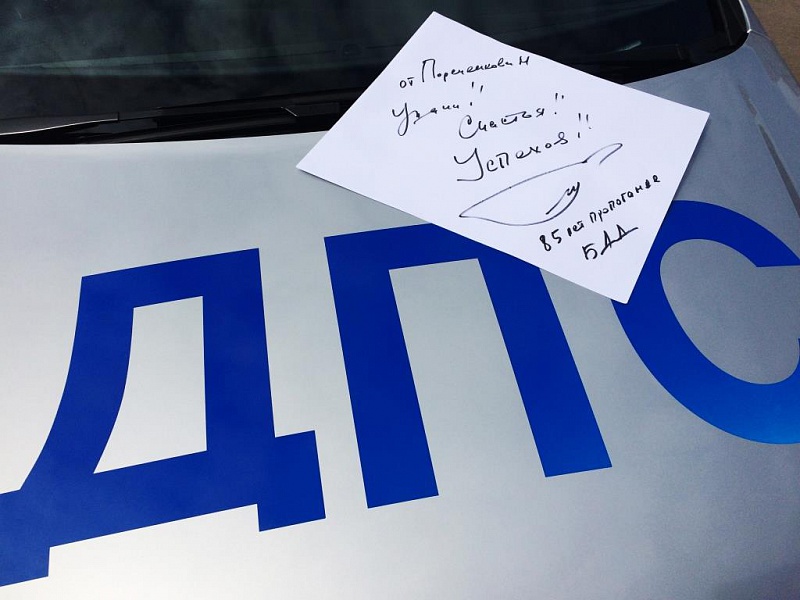 от Пореченкова М
Удачи!!
Счастья!!
Успехов!!
85 лет пропоганде
БДД
ДПС